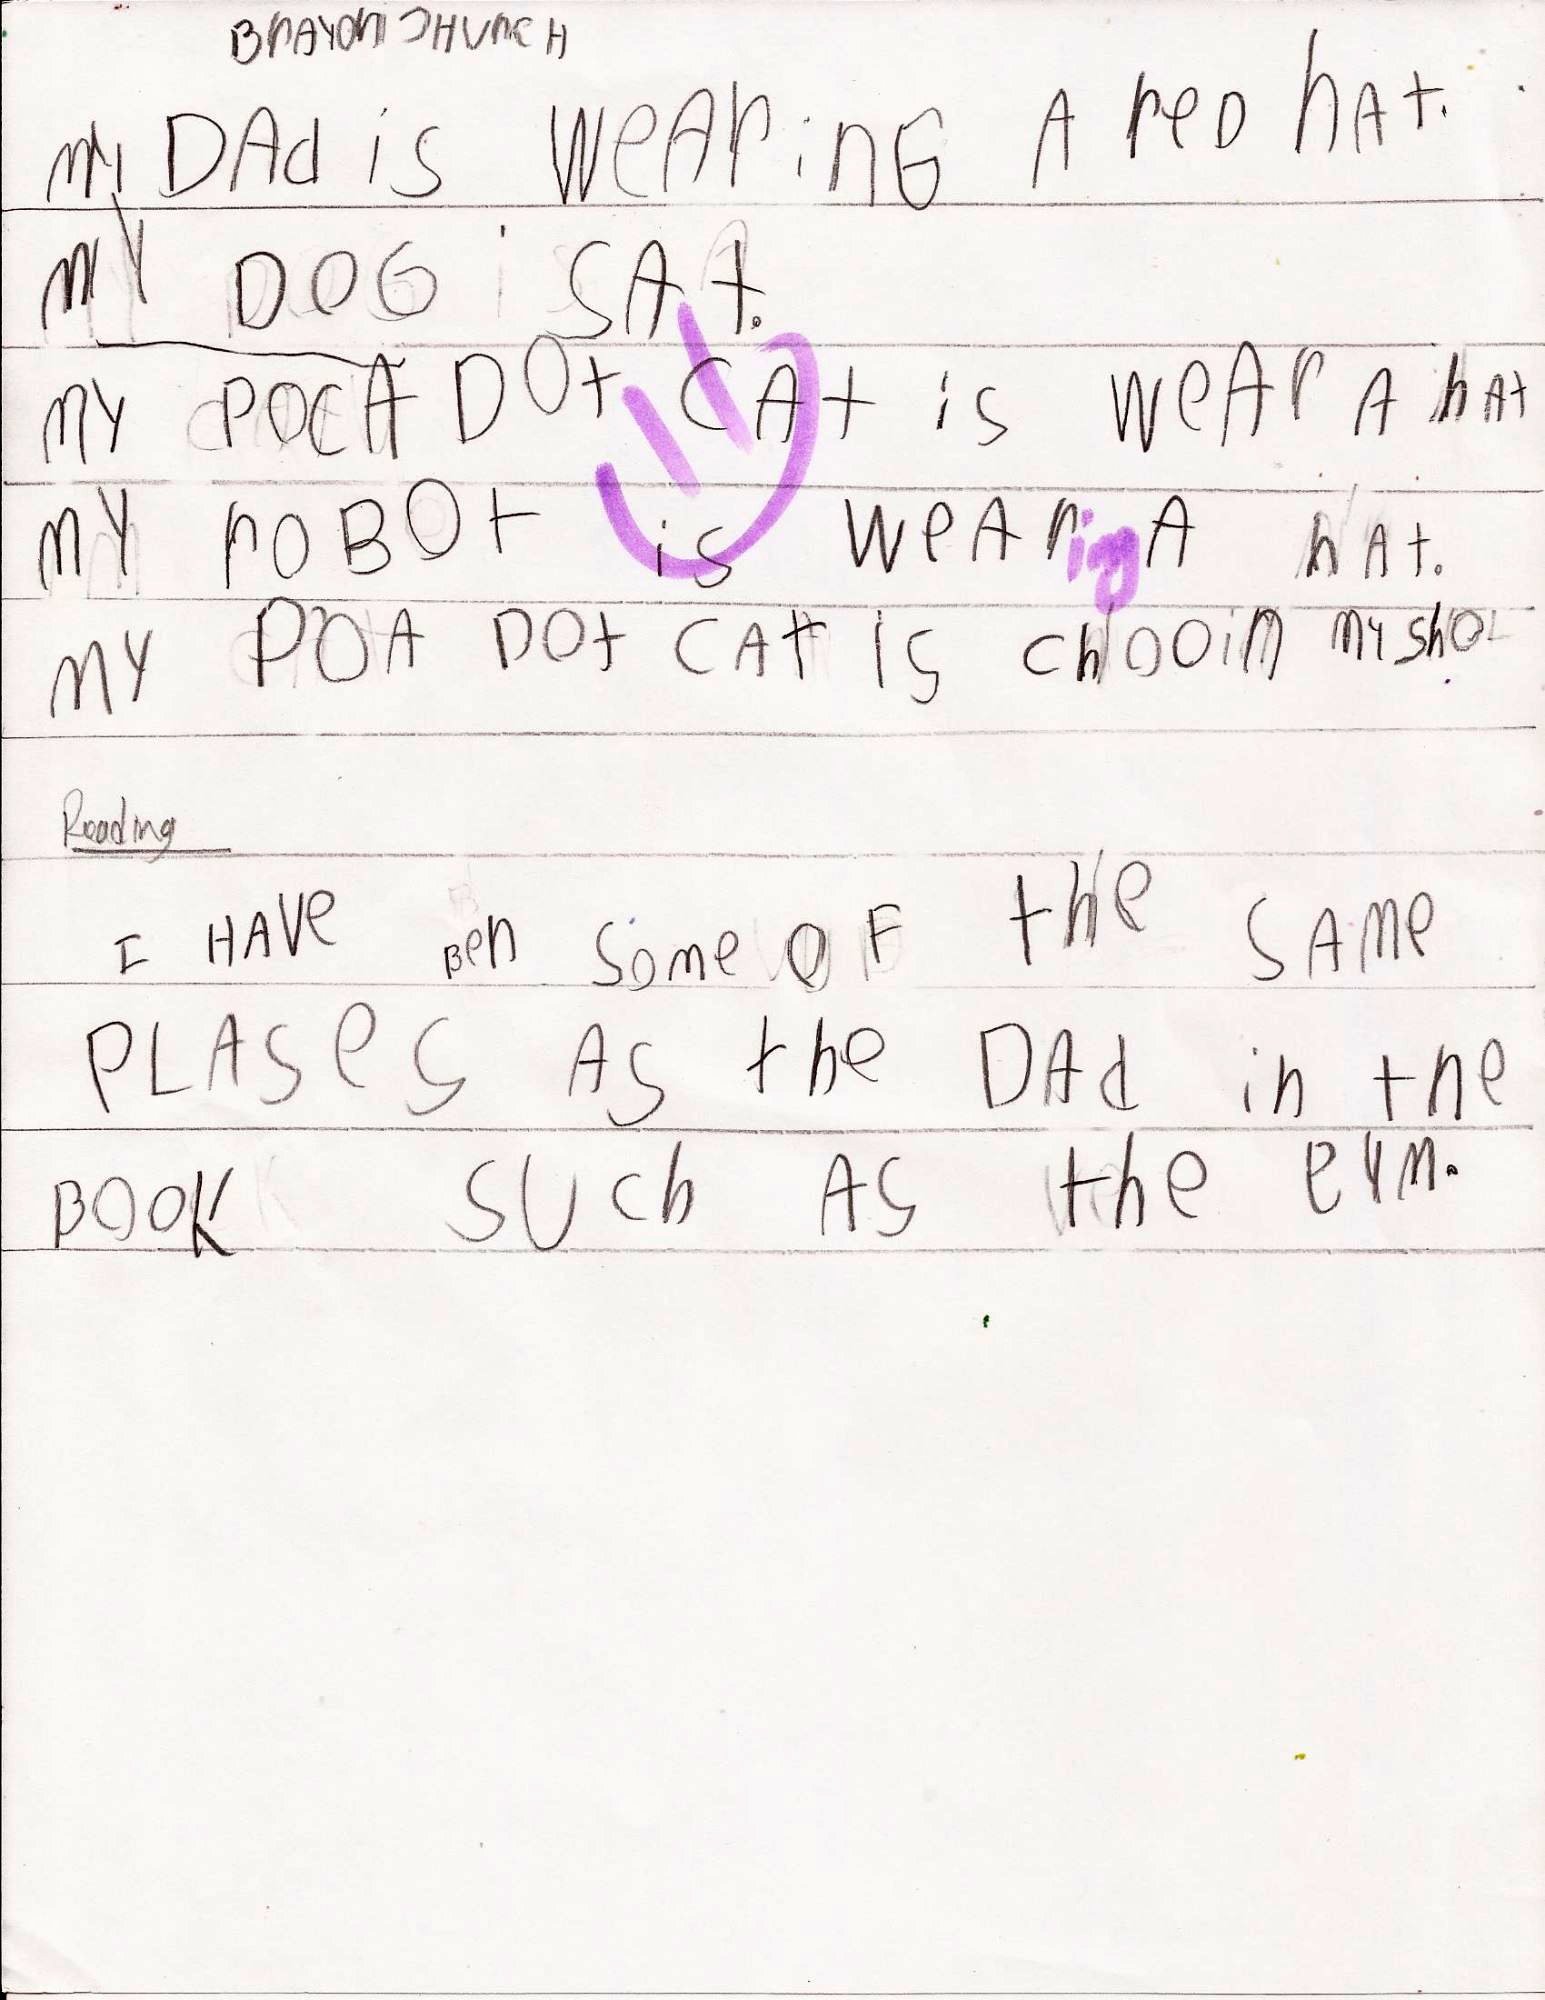 BrAYON CHUrCH
my DAd is weAring A reD hAt.
my DOG is SAt.
my POCA DOt CAt is weAr A hAt
my roBOt is weAring A hAt.
my POA DOt CAt is chooin my sho
Reading
I HAVe Ben some OF the SAme
PLASeS AS the DAd in the
BOOK SUch AS the eym.